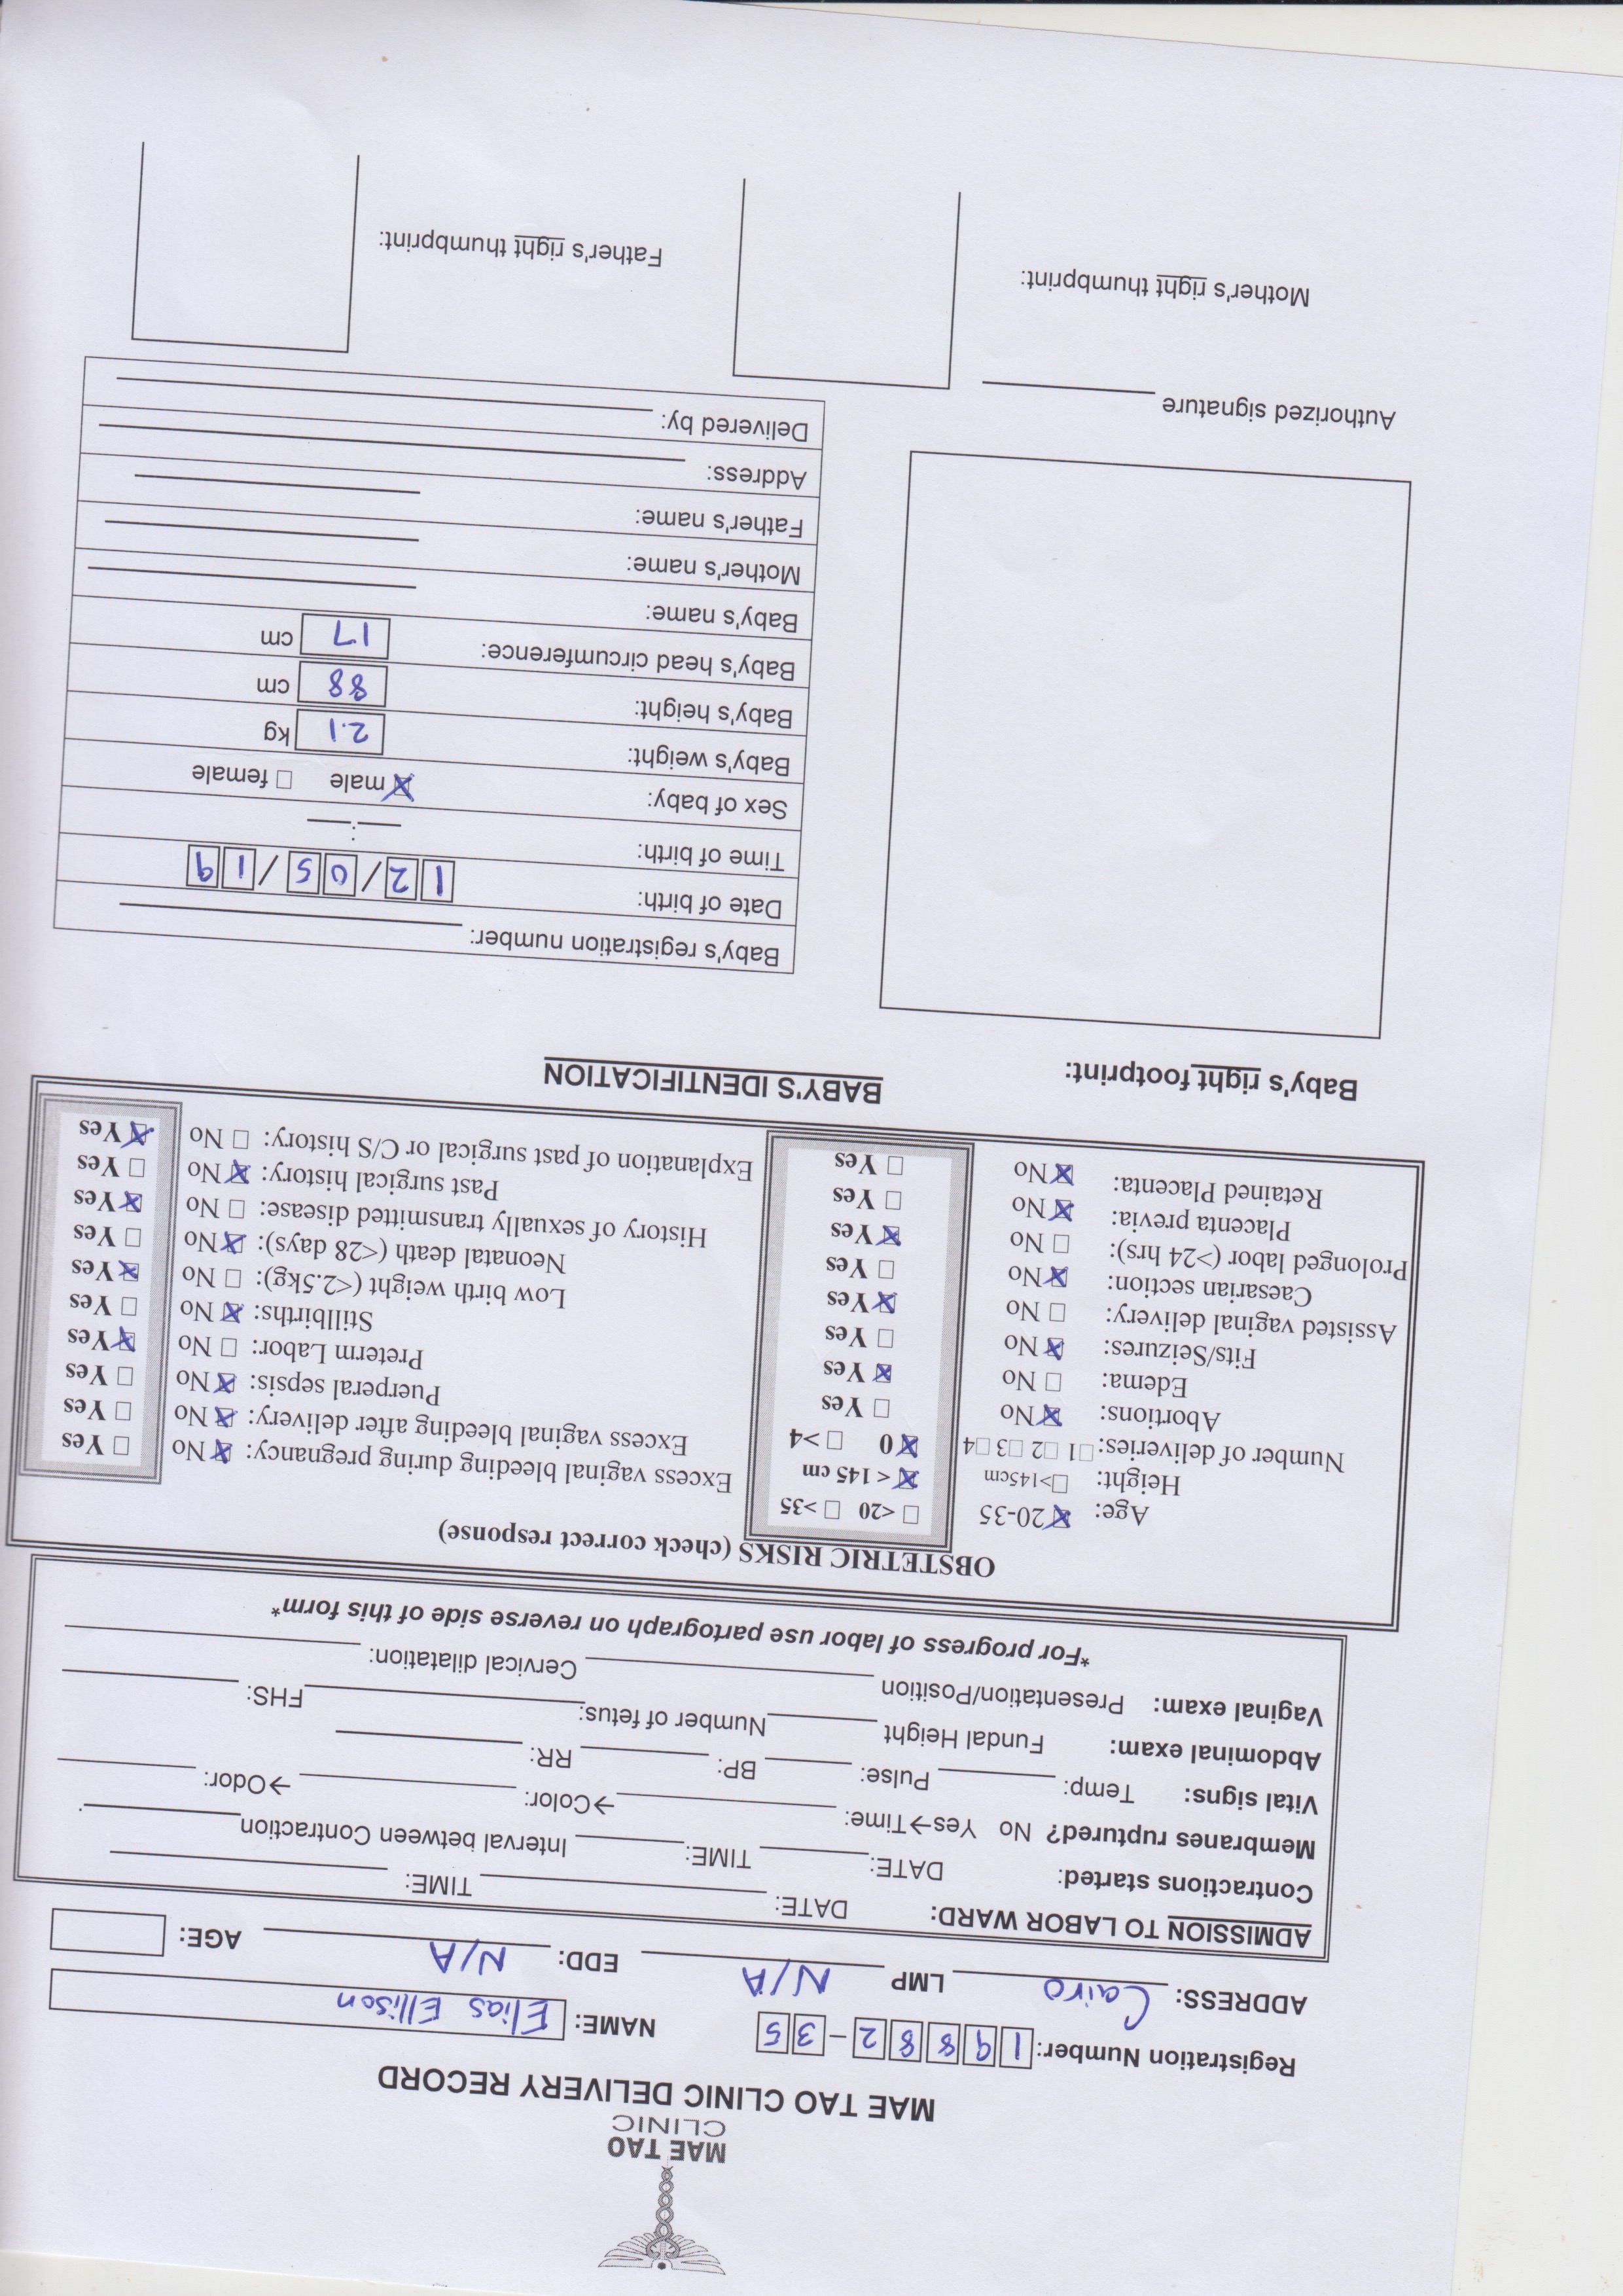 MAE TAO
CLINIC
MAE TAO CLINIC DELIVERY RECORD
Registration Number: 1 9 8 8 2 - 3 5 NAME: Elias Ellison
ADDRESS: Cairo LMP N/A EDD: N/A AGE:
ADMISSION TO LABOR WARD: DATE: TIME:
Contractions started: DATE: TIME: Interval between Contraction
Membranes ruptured? No Yes→Time: →Color: →Odor:
Vital signs: Temp: Pulse: BP: RR:
Abdominal exam: Fundal Height Number of fetus: FHS:
Vaginal exam: Presentation/Position Cervical dilatation:
*For progress of labor use partograph on reverse side of this form*
OBSTETRIC RISKS (check correct response)
Age: ☒ 20-35 ☐ <20 ☐ >35
Height: ☐ >145cm ☒ < 145 cm
Number of deliveries: ☐1 ☐2 ☐3 ☐4 ☒ 0 ☐ >4
Abortions: ☒ No ☐ Yes
Edema: ☐ No ☒ Yes
Fits/Seizures: ☒ No ☐ Yes
Assisted vaginal delivery: ☐ No ☒ Yes
Caesarian section: ☒ No ☐ Yes
Prolonged labor (>24 hrs): ☐ No ☒ Yes
Placenta previa: ☒ No ☐ Yes
Retained Placenta: ☒ No ☐ Yes
Excess vaginal bleeding during pregnancy: ☒ No ☐ Yes
Excess vaginal bleeding after delivery: ☒ No ☐ Yes
Puerperal sepsis: ☒ No ☐ Yes
Preterm Labor: ☐ No ☒ Yes
Stillbirths: ☒ No ☐ Yes
Low birth weight (<2.5kg): ☐ No ☒ Yes
Neonatal death (<28 days): ☒ No ☐ Yes
History of sexually transmitted disease: ☐ No ☒ Yes
Past surgical history: ☒ No ☐ Yes
Explanation of past surgical or C/S history: ☐ No ☒ Yes
Baby's right footprint:
BABY'S IDENTIFICATION
Baby's registration number:
Date of birth: 1 2 / 0 5 / 1 9
Time of birth: :
Sex of baby: ☒ male ☐ female
Baby's weight: 2.1 kg
Baby's height: 88 cm
Baby's head circumference: 17 cm
Baby's name:
Mother's name:
Father's name:
Address:
Delivered by:
Authorized signature
Mother's right thumbprint:
Father's right thumbprint: